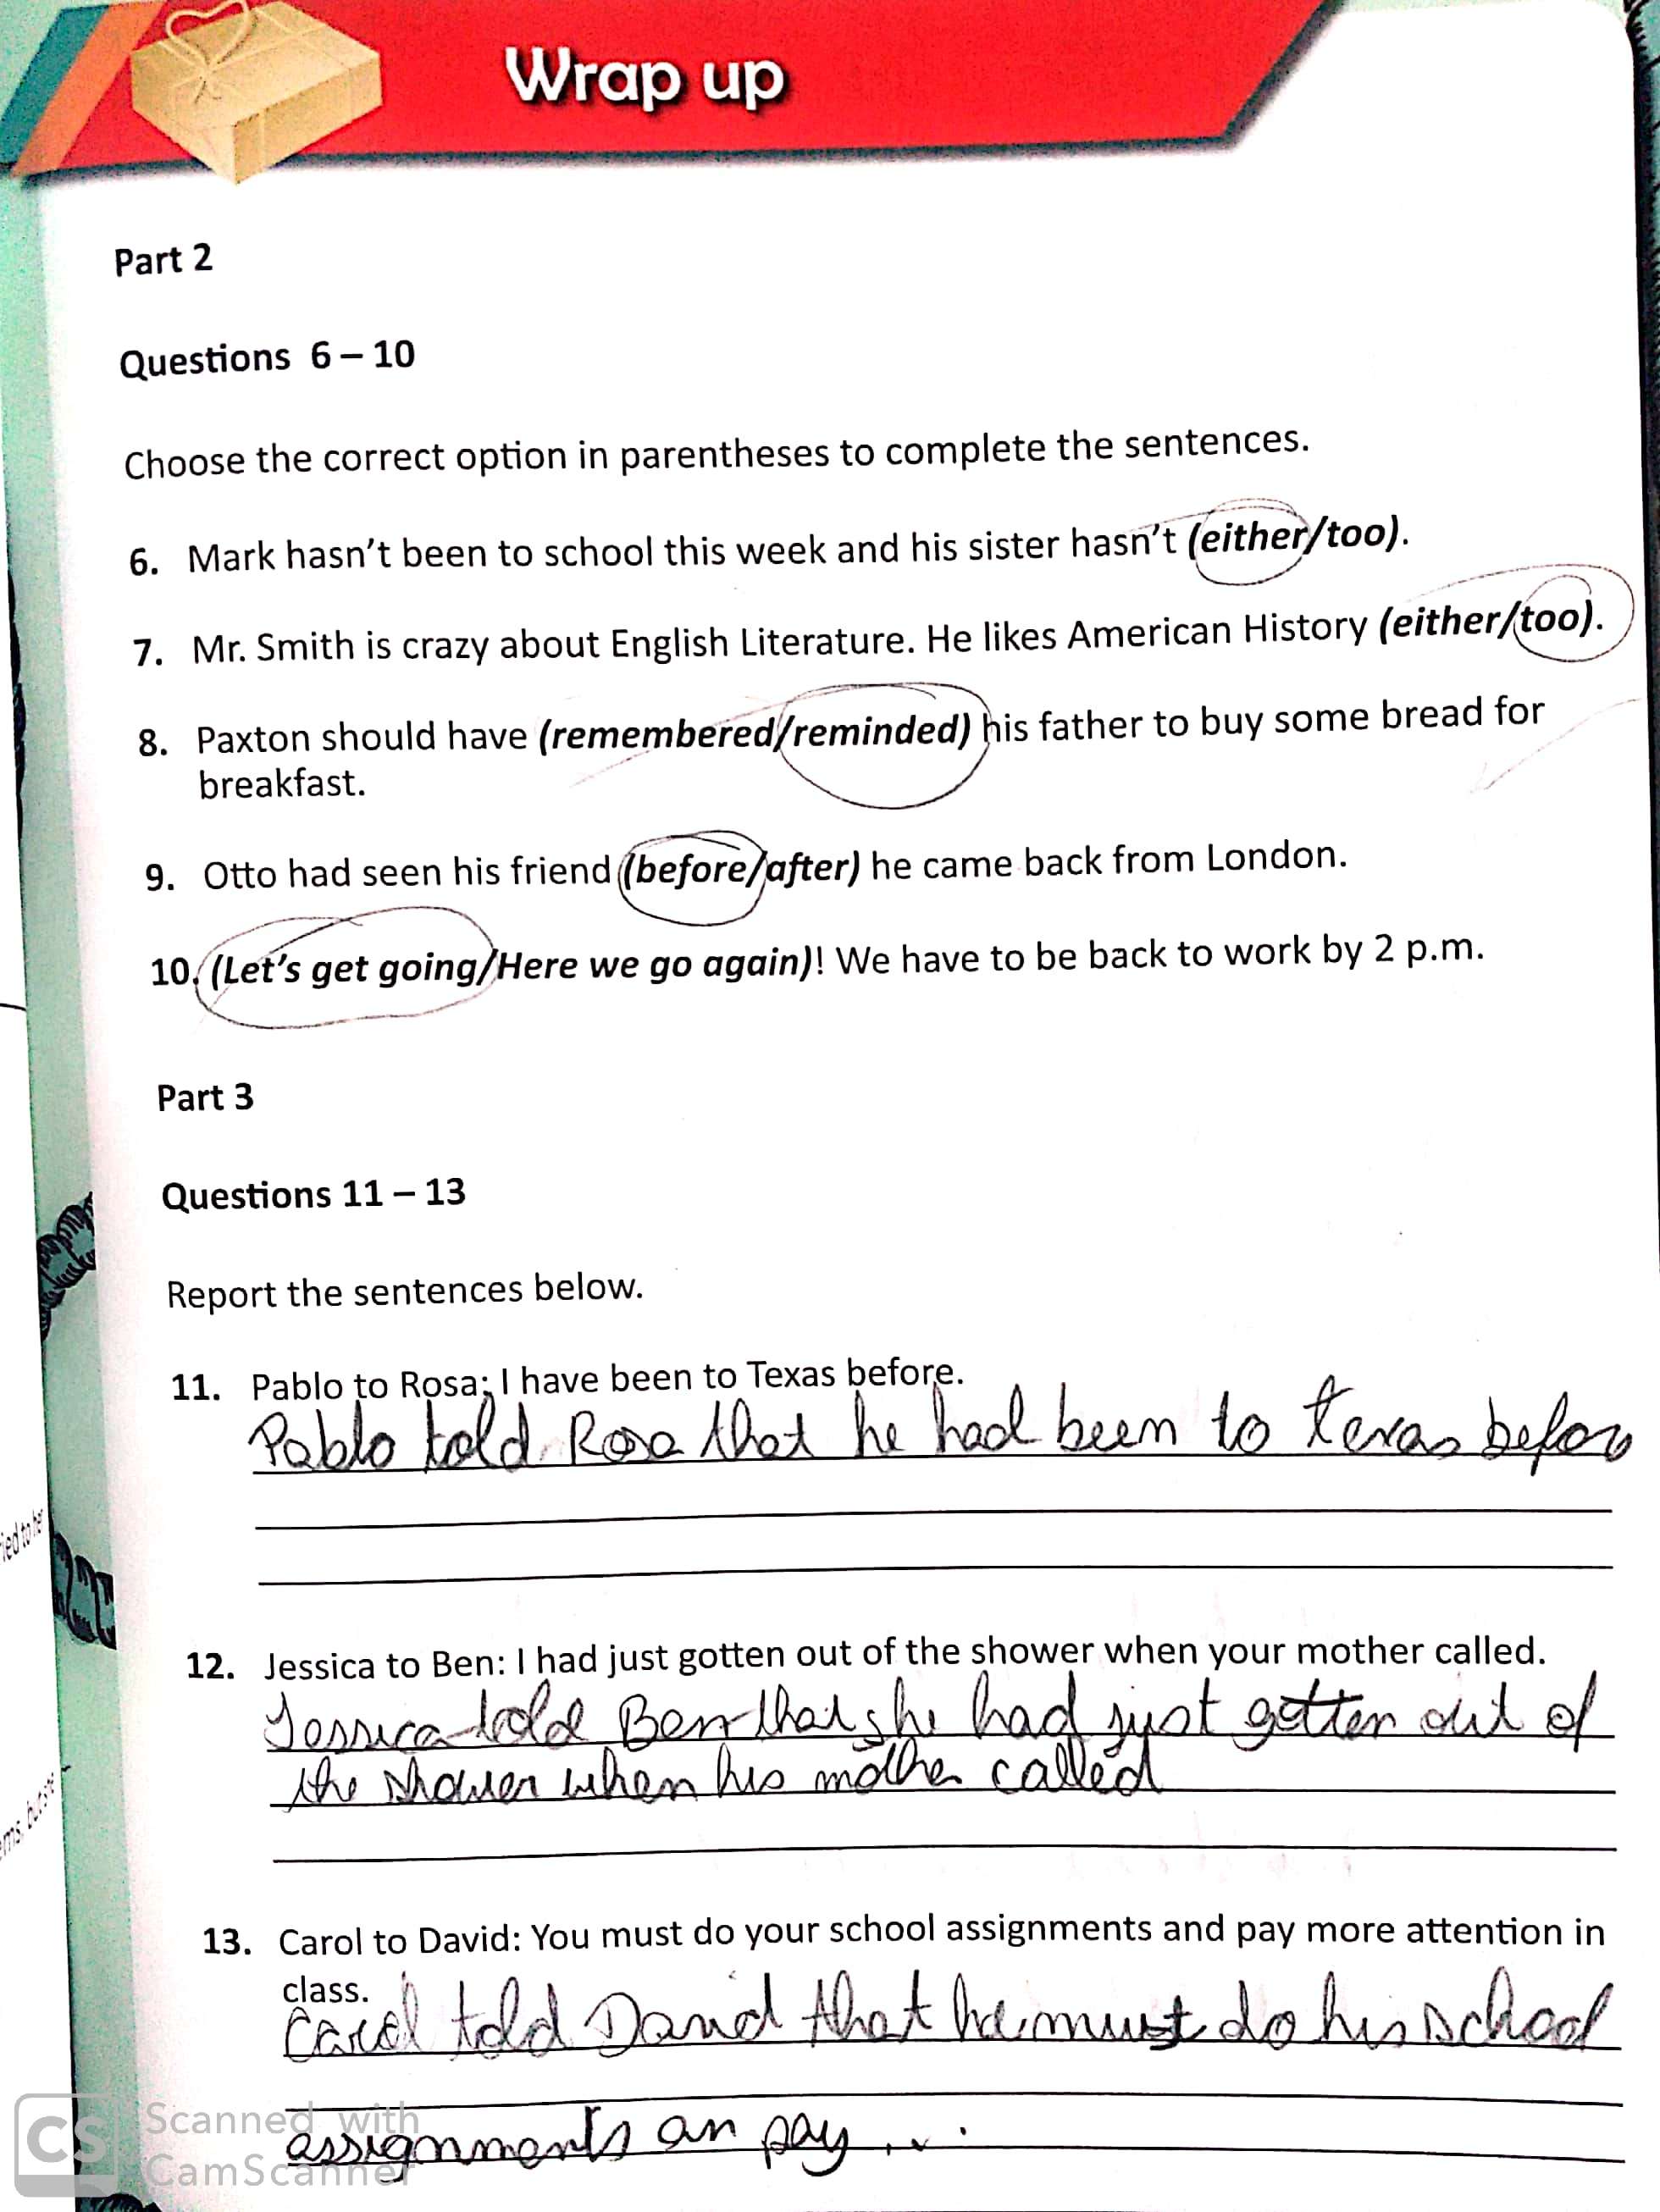 Wrap up
Part 2
Questions 6 – 10
Choose the correct option in parentheses to complete the sentences.
6. Mark hasn't been to school this week and his sister hasn't (either/too).
7. Mr. Smith is crazy about English Literature. He likes American History (either/too).
8. Paxton should have (remembered/reminded) his father to buy some bread for
breakfast.
9. Otto had seen his friend (before/after) he came back from London.
10. (Let's get going/Here we go again)! We have to be back to work by 2 p.m.
Part 3
Questions 11 – 13
Report the sentences below.
11. Pablo to Rosa: I have been to Texas before.
Pablo told Rosa that he had been to texas before
12. Jessica to Ben: I had just gotten out of the shower when your mother called.
Jessica told Ben that she had just gotten out of
the shower when his mother called
13. Carol to David: You must do your school assignments and pay more attention in
class.
Carol told David that he must do his school
assignments an pay ...
CS Scanned with
CamScanner